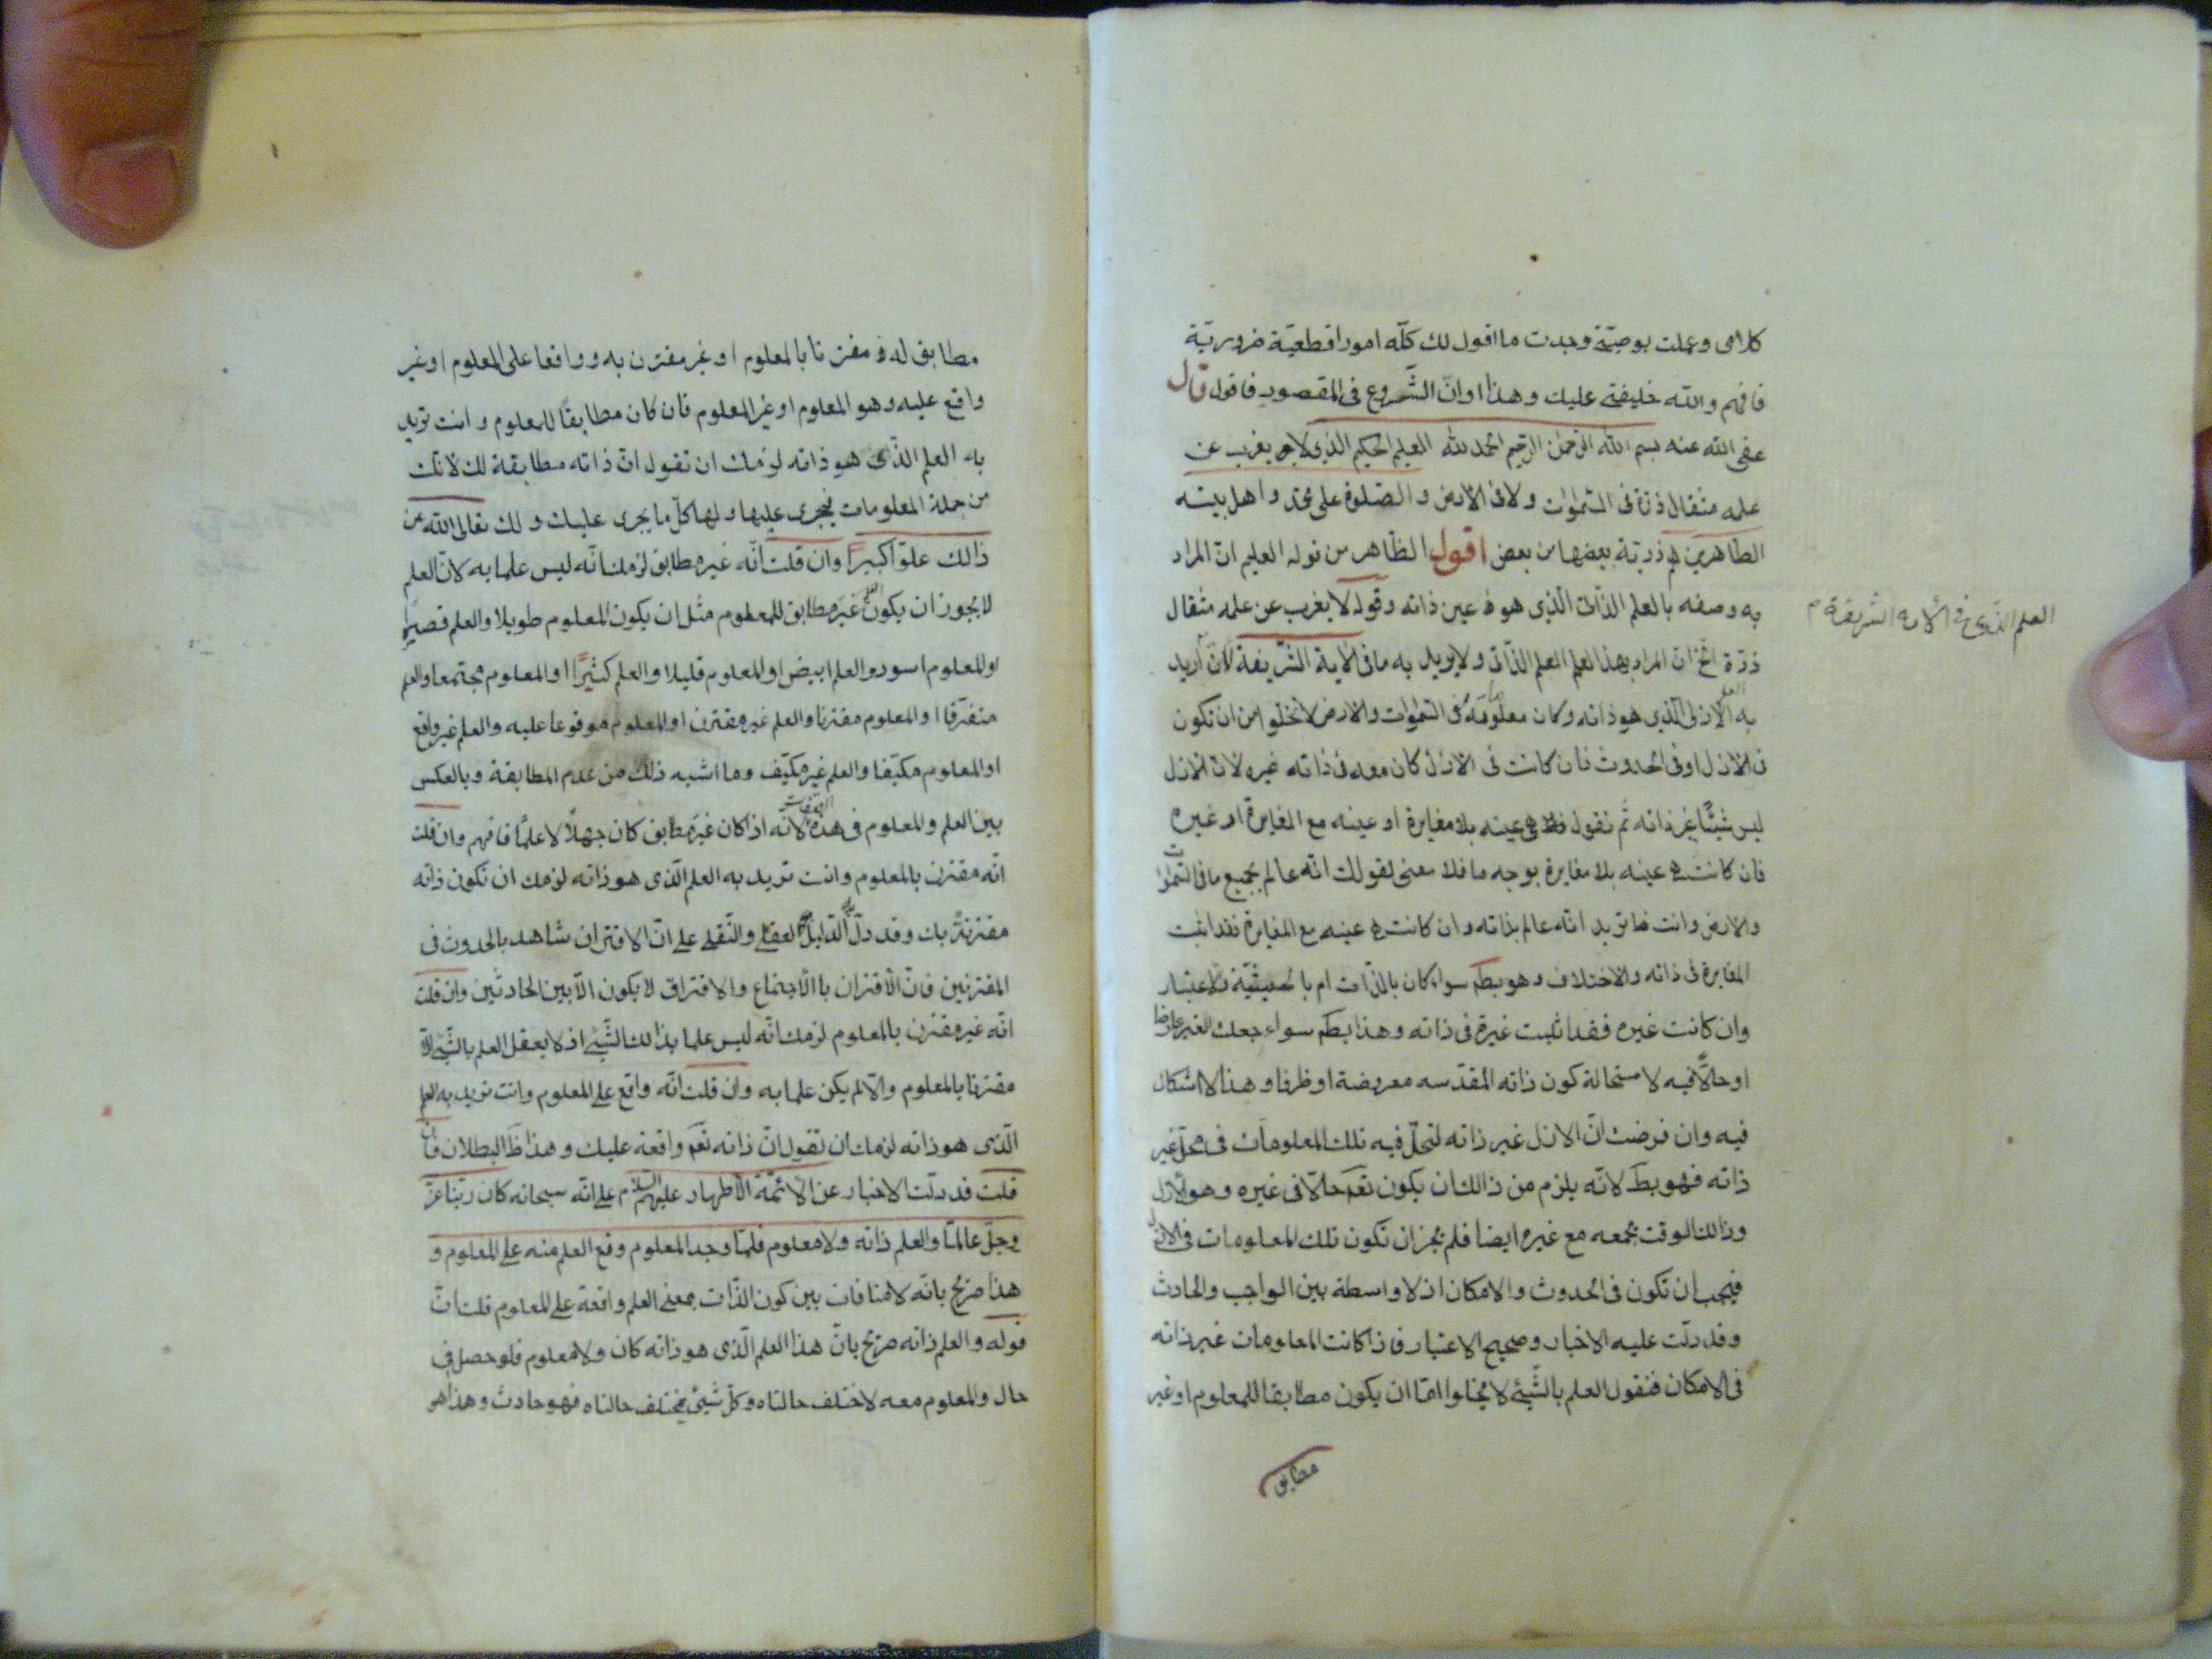 كلامى وعملت بوصيتى وجدت ما اقول لك كلّه امورا قطعيّة ضروريّة
فافهم والله خليفتى عليك وهذا اوان الشّروع فى المقصود فاقول قال
عفى الله عنه بسم الله الرّحمن الرّحيم الحمد لله العليم الحكيم الذى لا يعزب عن
علمه مثقال ذرّة فى السّموات ولا فى الارض والصّلوة على محمّد واهل بيته
الطّاهرين ذريّة بعضها من بعض اقول الظّاهر من قوله العليم انّ المراد
به وصفه بالعلم الذّاتى الّذى هو عين ذاته وقوله لا يغرب عن علمه مثقال
ذرّة الخ انّ المراد بهذا العلم العلم الذّاتى ولا يريد به ما فى الآية الشّريفة لانّ اريد
العلم الذى فى الآية الشريفة م
به العلم الازلى الّذى هو ذاته وكان معلومه ما فى السّموات والارض لا تخلو امن ان تكون
فى الازل او فى الحدوث فان كانت فى الازل كان معه فى ذاته غيره لانّ الازل
ليس شيئًا غير ذاته ثم نقول هى عينه بلا مغايرة او عينه مع المغايرة او غيره
فان كانت هى عينه بلا مغايرة بوجه ما فلا معنى لقولك انّه عالم بجميع ما فى السّموات
والارض وانت تريد انّه عالم بذاته وان كانت هى عينه مع المغايرة فقد اثبت
المغايرة فى ذاته والاختلاف وهو بط سواء كان بالذّات ام بالحيثيّة والاعتبار
وان كانت غيره فقد اثبت غيره فى ذاته وهذا بط سواء جعلت الغير عارضا
او حالّا فيه لاستحالة كون ذاته المقدّسه معروضة او ظرفا وهذا لا اشكال
فيه وان فرضت انّ الازل غير ذاته لتحلّ فيه تلك المعلومات فى محلّ غير
ذاته فهو بط لانّه يلزم من ذالك ان يكون تعم حالّا فى غيره وهو الازل
وذالك الوقت يجمعه مع غيره ايضا فلم يجز ان تكون تلك المعلومات فى الازل
فيجب ان تكون فى الحدوث والامكان اذ لا واسطة بين الواجب والحادث
وقد دلّت عليه الاخبار وصحيح الاعتبار فاذا كانت المعلومات غير ذاته
فى الامكان فنقول العلم بالشّيئ لا يخلوا امّا ان يكون مطابقا للمعلوم او غير
مطابق
مطابق له ومقترنا بالمعلوم او غير مقترن به وواقعا على المعلوم او غير
واقع عليه وهو المعلوم او غير المعلوم فان كان مطابقاً للمعلوم وانت تريد
به العلم الّذى هو ذاته لزمك ان تقول انّ ذاته مطابقة لك لانّك
من جملة المعلومات فيجرى عليها ولها كلّ ما يجرى عليك ولك تعالى الله عن
ذالك علوّا كبيرًا وان قلت انّه غير مطابق لزمك انّه ليس علما به لانّ العلم
لا يجوز ان يكون غير مطابق للمعلوم مثل ان يكون المعلوم طويلا والعلم قصيرًا
او المعلوم اسود والعلم ابيض او المعلوم قليلا والعلم كثيرًا او المعلوم مجتمعا والعلم
متفرّقا او المعلوم مقترنا والعلم غير مقترن او المعلوم موقوعا عليه والعلم غير واقع
او المعلوم مكيّفا والعلم غير مكيّف وما اشبه ذلك من عدم المطابقة وبالعكس
بين العلم والمعلوم فى هذه الصّفات لانّه اذا كان غير مطابق كان جهلًا لا علمًا فافهم وان قلت
انّه مقترن بالمعلوم وانت تريد به العلم الّذى هو ذاته لزمك ان تكون ذاته
مقترنة بك وقد دلّ الدّليل العقلى والنّقلى على انّ الاقتران شاهد بالحدوث فى
المقترنين فانّ الاقتران باالاجتماع والافتراق لا يكون الّا بين الحادثين وان قلت
انّه غير مقترن بالمعلوم لزمك انّه ليس علما بذالك الشّيئ اذ لا يعقل العلم بالشّيئ الّا
مقترنا بالمعلوم والّا لم يكن علما به وان قلت انّه واقع على المعلوم وانت تريد به العلم
الّذى هو ذاته لزمك ان تقول انّ ذاته تعم واقعة عليك وهذا ظ البطلان فان
قلت قد دلّت الاخبار عن الائمّة الأطهار عليهم السلام على انّه سبحانه كان ربّنا عزّ
وجلّ عالمًا والعلم ذاته ولا معلوم فلمّا وجد المعلوم وقع العلم منه على المعلوم و
هذا صريح بانّه لا منافات بين كون الذّات بمعنى العلم واقعة على المعلوم قلت انّ
قوله والعلم ذاته صريح بانّ هذا العلم الّذى هو ذاته كان ولا معلوم فلو حصل فى
حال والمعلوم معه لاختلف حالتاه وكلّ شيئ يختلف حالتاه فهو حادث وهذا هو